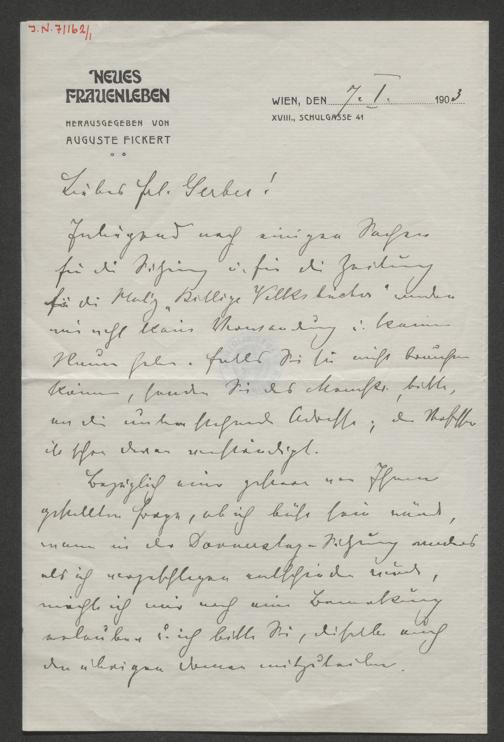 J.N. 71162/1
NEUES
FRAUENLEBEN
HERAUSGEGEBEN VON
AUGUSTE FICKERT
WIEN, DEN 7. I. 1903
XVIII., SCHULGASSE 41
Liebes Frl. Gerber!
Inliegend noch einigen Sachen
für die Sitzung u. für die Zeitung
für die Notiz „Billige Volksbücher" werden
wir wohl keine Verwendung u. keinen
Raum haben. Falls Sie sie nicht brauchen
können, senden Sie das Manuskr., bitte,
an die untenstehende Adresse; der Verfasser
ist schon davon verständigt.
Bezüglich einer gestern von Ihnen
gestellten Frage, ob ich böse sein würde,
wenn in der Donnerstag-Sitzung anders
als ich vorgeschlagen entschieden würde,
möchte ich mir noch eine Bemerkung
erlauben u. ich bitte Sie, dieselbe auch
den übrigen Damen mitzuteilen.